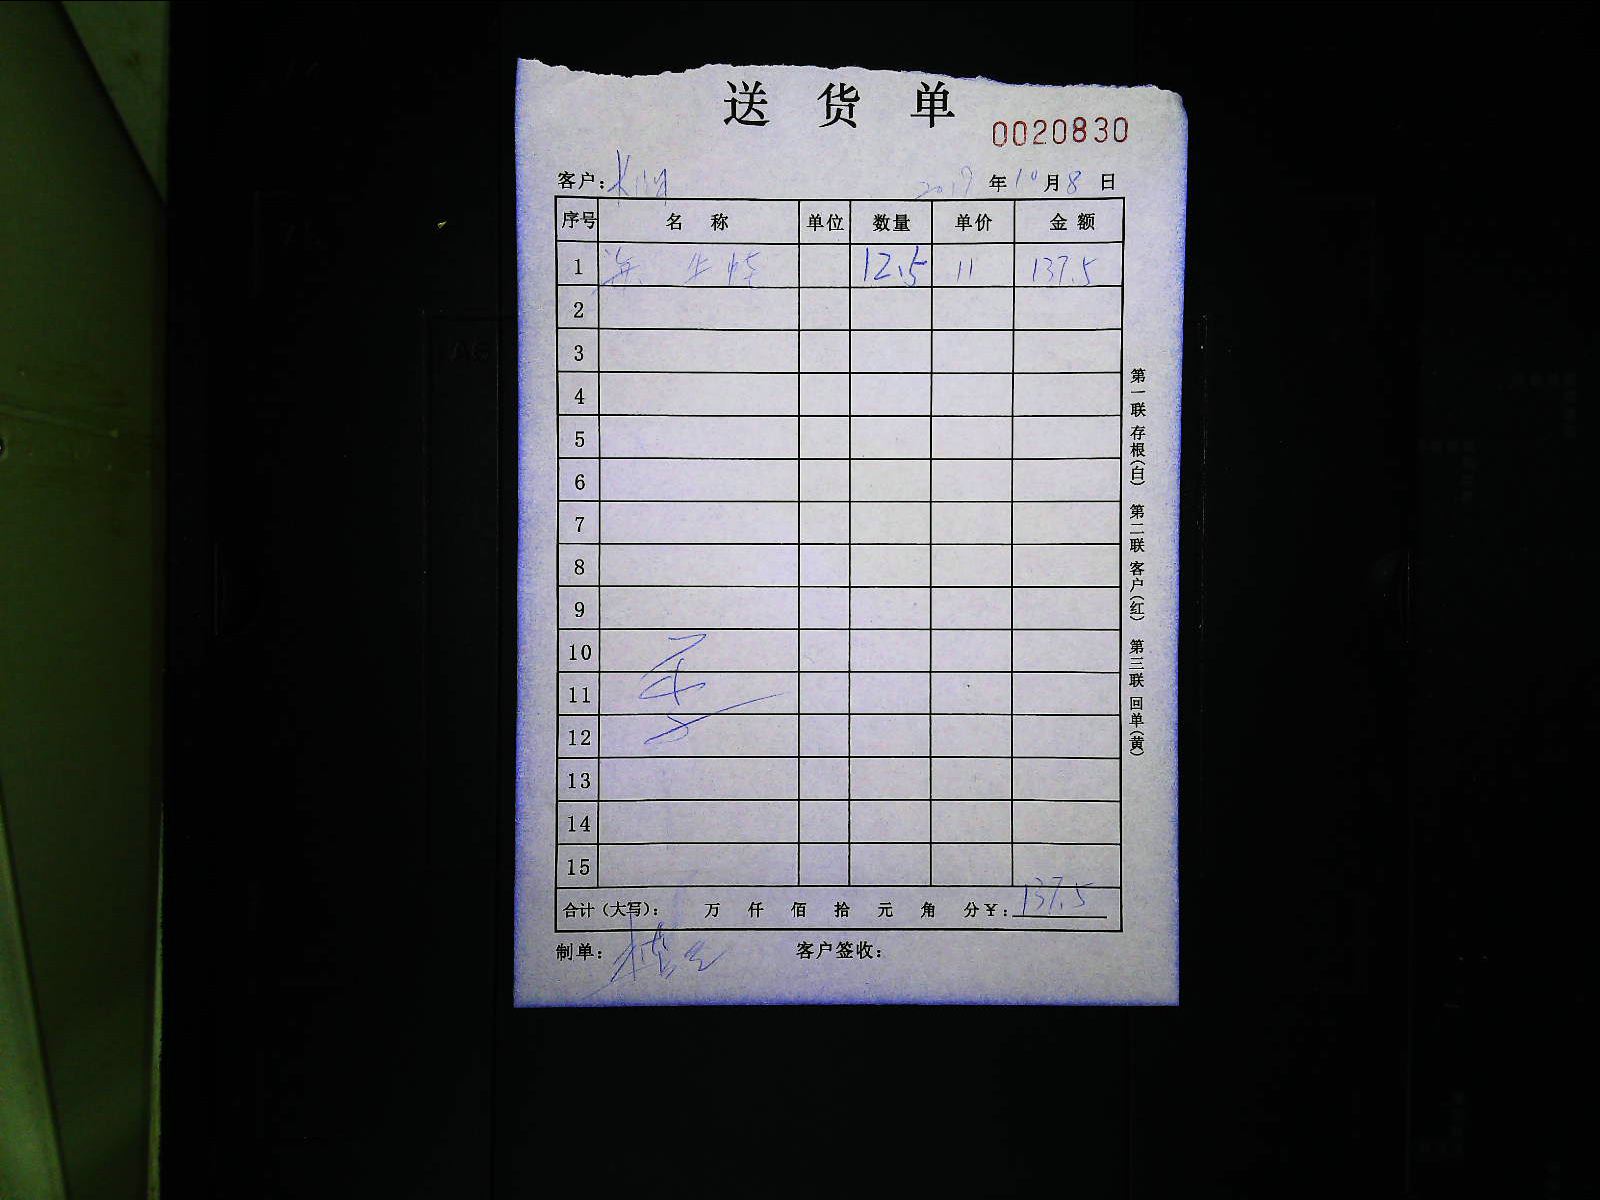 送货单
0020830
客户: 2017年10月8日
序号 名称 单位 数量 单价 金额
1 海 生蚝 12.5 11 137.5
2
3
4
5
6
7
8
9
10
11
12
13
14
15
合计(大写): 万 仟 佰 拾 元 角 分¥: 137.5
制单: 客户签收:
第一联 存根(白) 第二联 客户(红) 第三联 回单(黄)